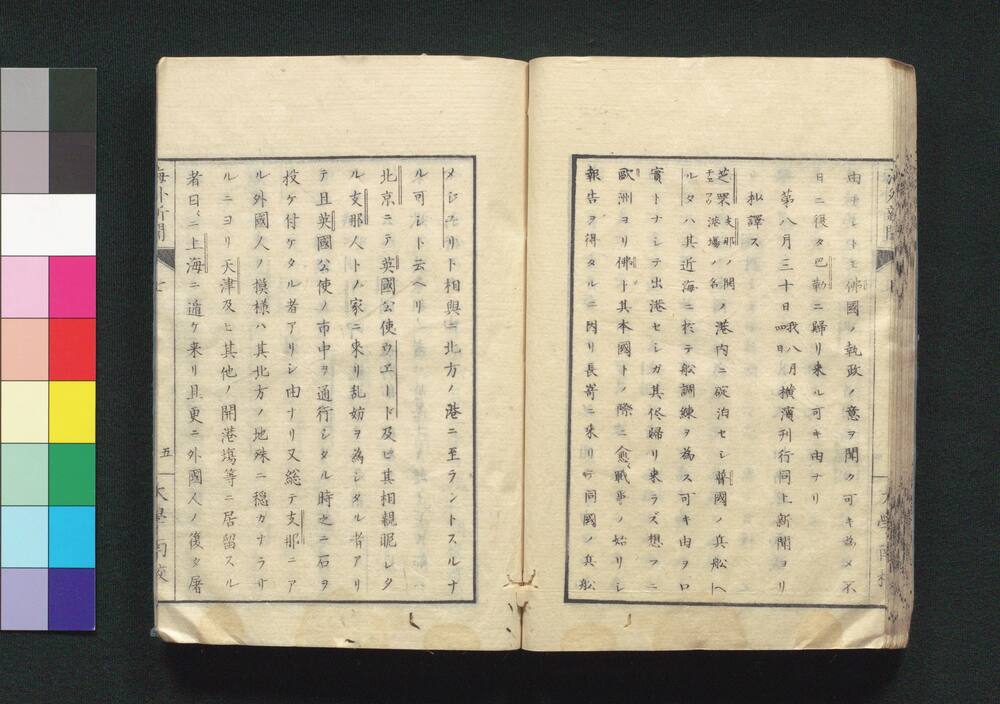 由ナシトモ佛國ノ執政ノ意ヲ聞ク可キ為メ不
日ニ復タ巴勒ニ歸リ来ル可キ由ナリ
第八月三十日我八月四日横濱刊行同上新聞ヨリ
抄譯ス
芝罘支那ノ開港塲ノ名ノ港内ニ碇泊セシ孛國ノ兵舩ヘ
ルタハ其近海ニ於テ舩調練ヲ為ス可キ由ヲ口
實トナシテ出港セシガ其後歸リ来ラズ想フニ
歐洲ヨリ佛ト其本國トノ際ニ愈戰爭ノ始リシ
報告ヲ得タルニ因リ長嵜ニ来リテ同國ノ兵舩
メシユリト相與ニ北方ノ港ニ至ラントスルナ
ル可シト云ヘリ
北京ニテ英國公使ウエード及ヒ其相親昵シタ
ル支那人トノ家ニ来リ乱妨ヲ為シタル者アリ
テ且英國公使ノ市中ヲ通行シタル時之ニ石ヲ
投ケ付ケタル者アリシ由ナリ又総テ支那ニア
ル外國人ノ模様ハ其北方ノ地殊ニ穏カナラサ
ルニヨリ天津及ヒ其他ノ開港塲等ニ居留スル
者曰ニ上海ニ遁ケ来リ且更ニ外國人ノ復タ屠
海外新聞 七 五 大學南校